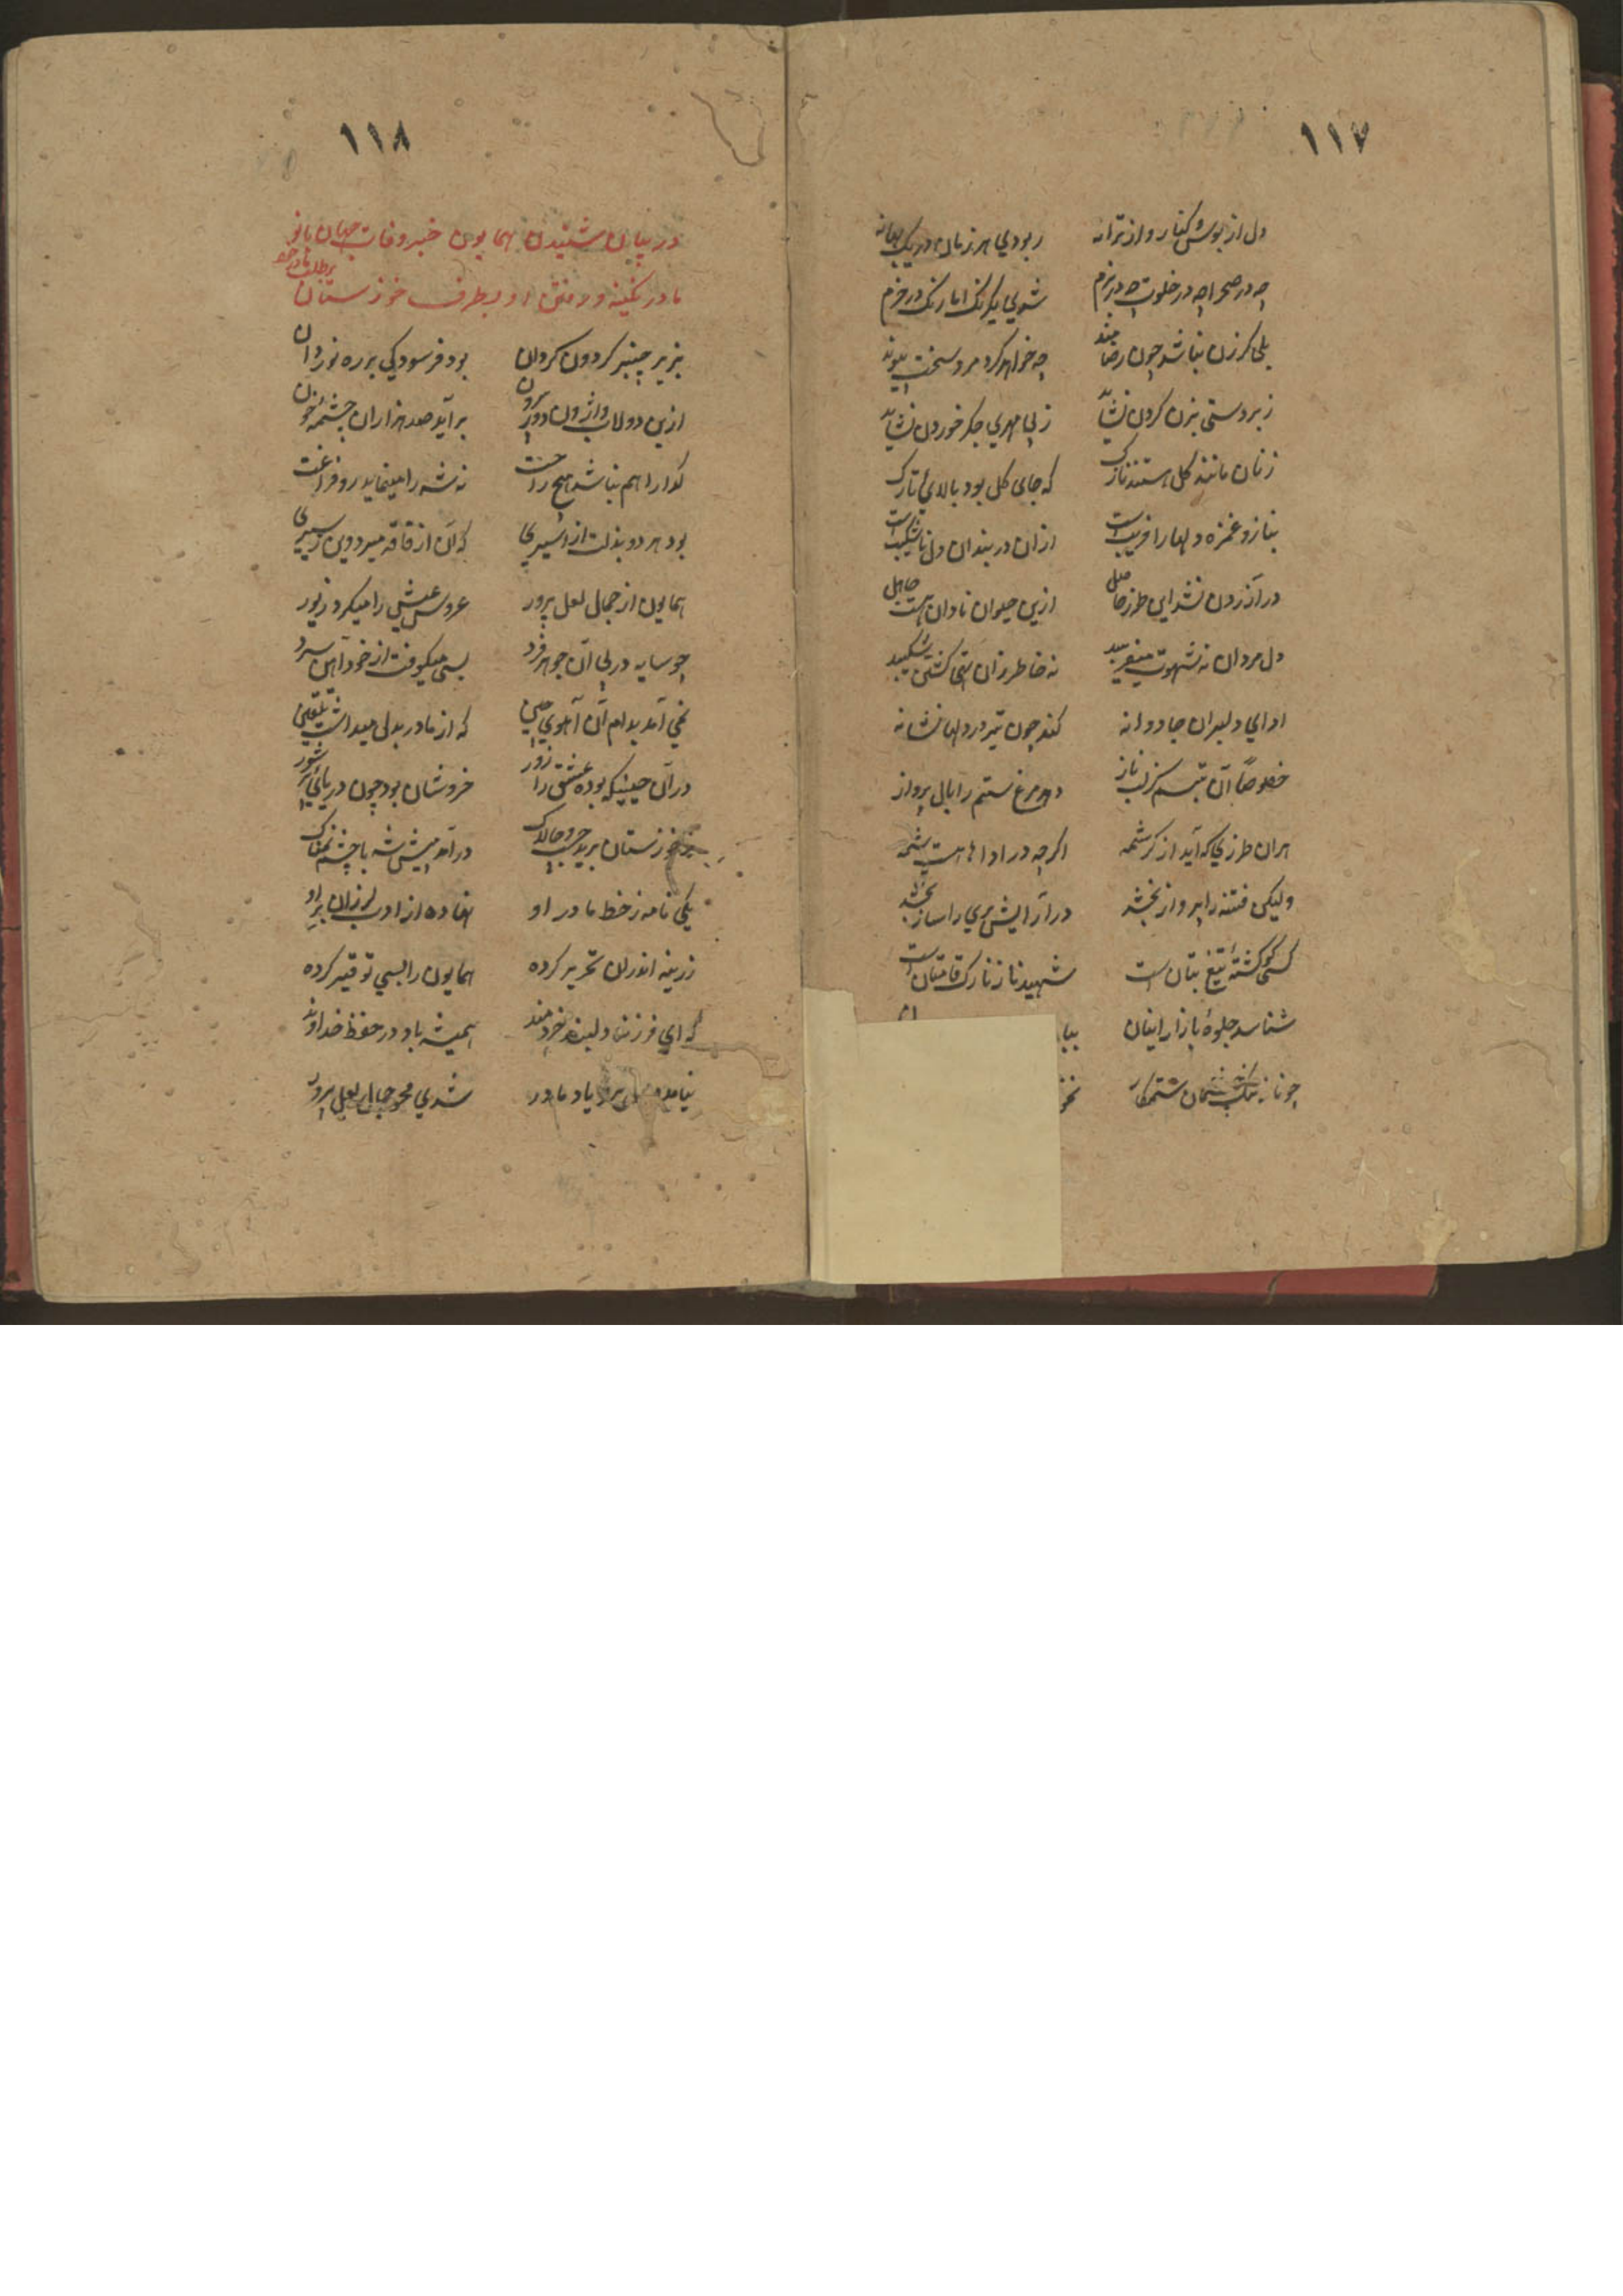 ۱۱۷
دل از بوس و کنار و از ترانه ربودی هر زمان در یک بهانه
چه در صحرا چه در خلوت چه در بزم شوی یکرنک اما رنک در خرم
بلی کر زن نباشد چون رضامند چه خواهد کرد مرد سخت پیوند
زبردستی بزن کردن نشاید ز بی مهری جکر خوردن نشاید
زنان مانند کل هستند نازک که جای کل بود بالای تارک
بناز و غمزه دلها را فریب است ازان در بند ان دل ناشکیب است
در آزردن نشد این طرز حاصل ازین حیوان نادان هست جاهل
دل مردان نه شهوت میفریبد نه خاطر زان
ادای دلبران جادوانه کند چون تیر در دلها نشانه
خصوصًا آن تبسم کز لب ناز دهد مرغ ستم را بال پرواز
هران طرزی که آید از کرشمه اکرچه در اداها هست
ولیکن فتنه را پرواز بخشد در آرایش پری را ساز بخشد
کسی کو کشتهٔ تیغ بتان است شهید ناز نازک قامتان است
شناسد جلوهٔ بازار اینان
چو ناز
۱۱۸
در بیان شنیدن همایون خبر وفات جهان بانو
مادر نکینه و رفتن او بطرف خوزستان بر طلب مادر خود
بزیر چنبر کردون کردان بود فرسودکی بر ره نوردان
ازین دولاب واژون دور بیرون برآید صد هزاران چشمهٔ خون
کدا را هم نباشد هیچ راحت نه شه را مینماید رو فراغت
بود هر دو بذلت از اسیری که آن از فاقه میرد وین ز سیری
همایون از جمال لعل پرور عروس عیش را میکرد زیور
چو سایه در پی آن جوهر فرد بسی میکوفت از خود آهن سرد
نمی آمد بدام آن آهوی چین که از مادر بدل میداشت تلقین
در آن حینیکه بوده عشق را زور خروشان بود چون دریای پر شور
ز خوزستان برید چست و چالاک درآمد پیش شه با چشم نمناک
یکی نامه ز خط مادر او نهاده از ادب لرزان بر او
زرینه اندران تحریر کرده همایون را بسی توقیر کرده
که ای فرزند دلبند خردمند همیشه باد در حفظ خداوند
نیامد یاد مادر شدی محو جمال لعل پرور